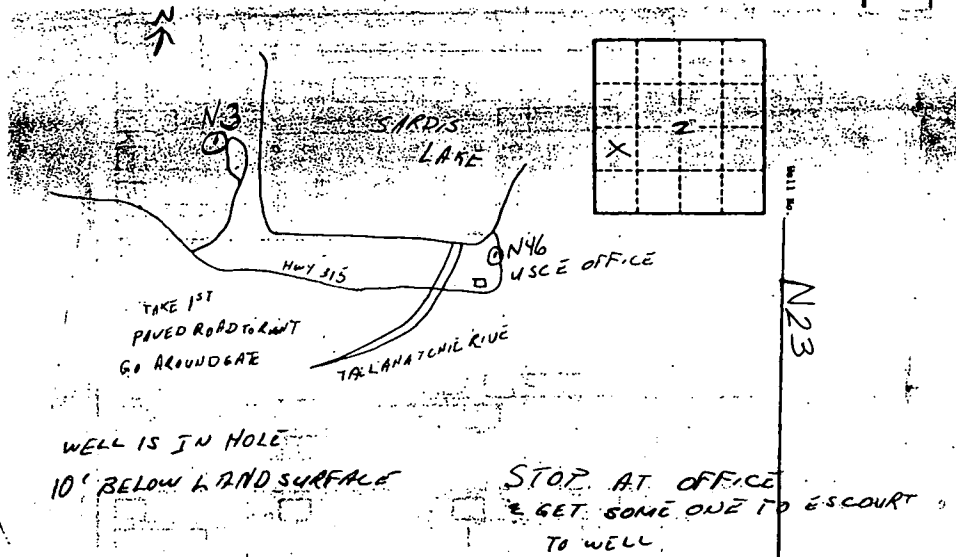 N
N3
SARDIS
LAKE
X
N
Well No.
N23
N46
USCE OFFICE
Hwy 315
TAKE 1ST
PAVED ROAD TO RIGHT
GO AROUND GATE
TALLAHATCHIE RIVE
WELL IS IN HOLE
10' BELOW LAND SURFACE
STOP. AT OFFICE
& GET SOME ONE TO ESCOURT
TO WELL.